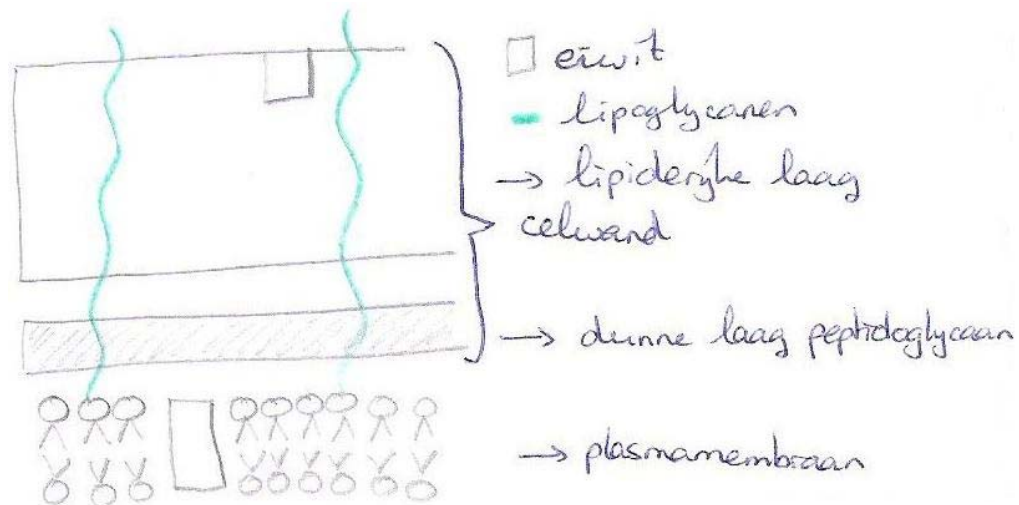 eiwit
lipoglycanen
→ lipiderijke laag
celwand
→ dunne laag peptidoglycaan
→ plasmamembraan